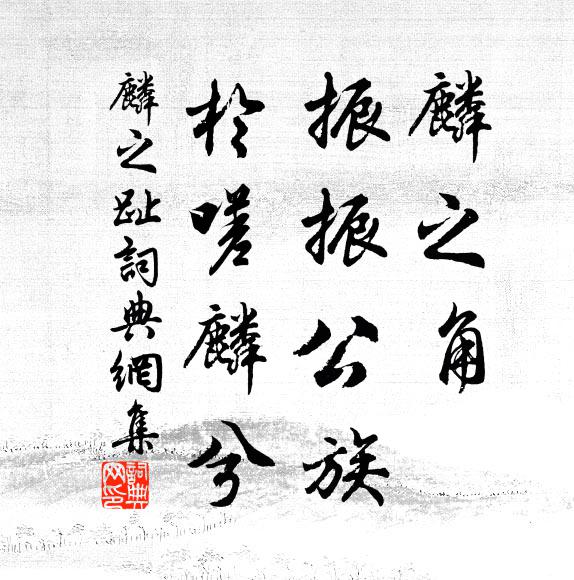 麟之角
振振公族
於嗟麟兮
麟之趾詞典網集
詞典网印